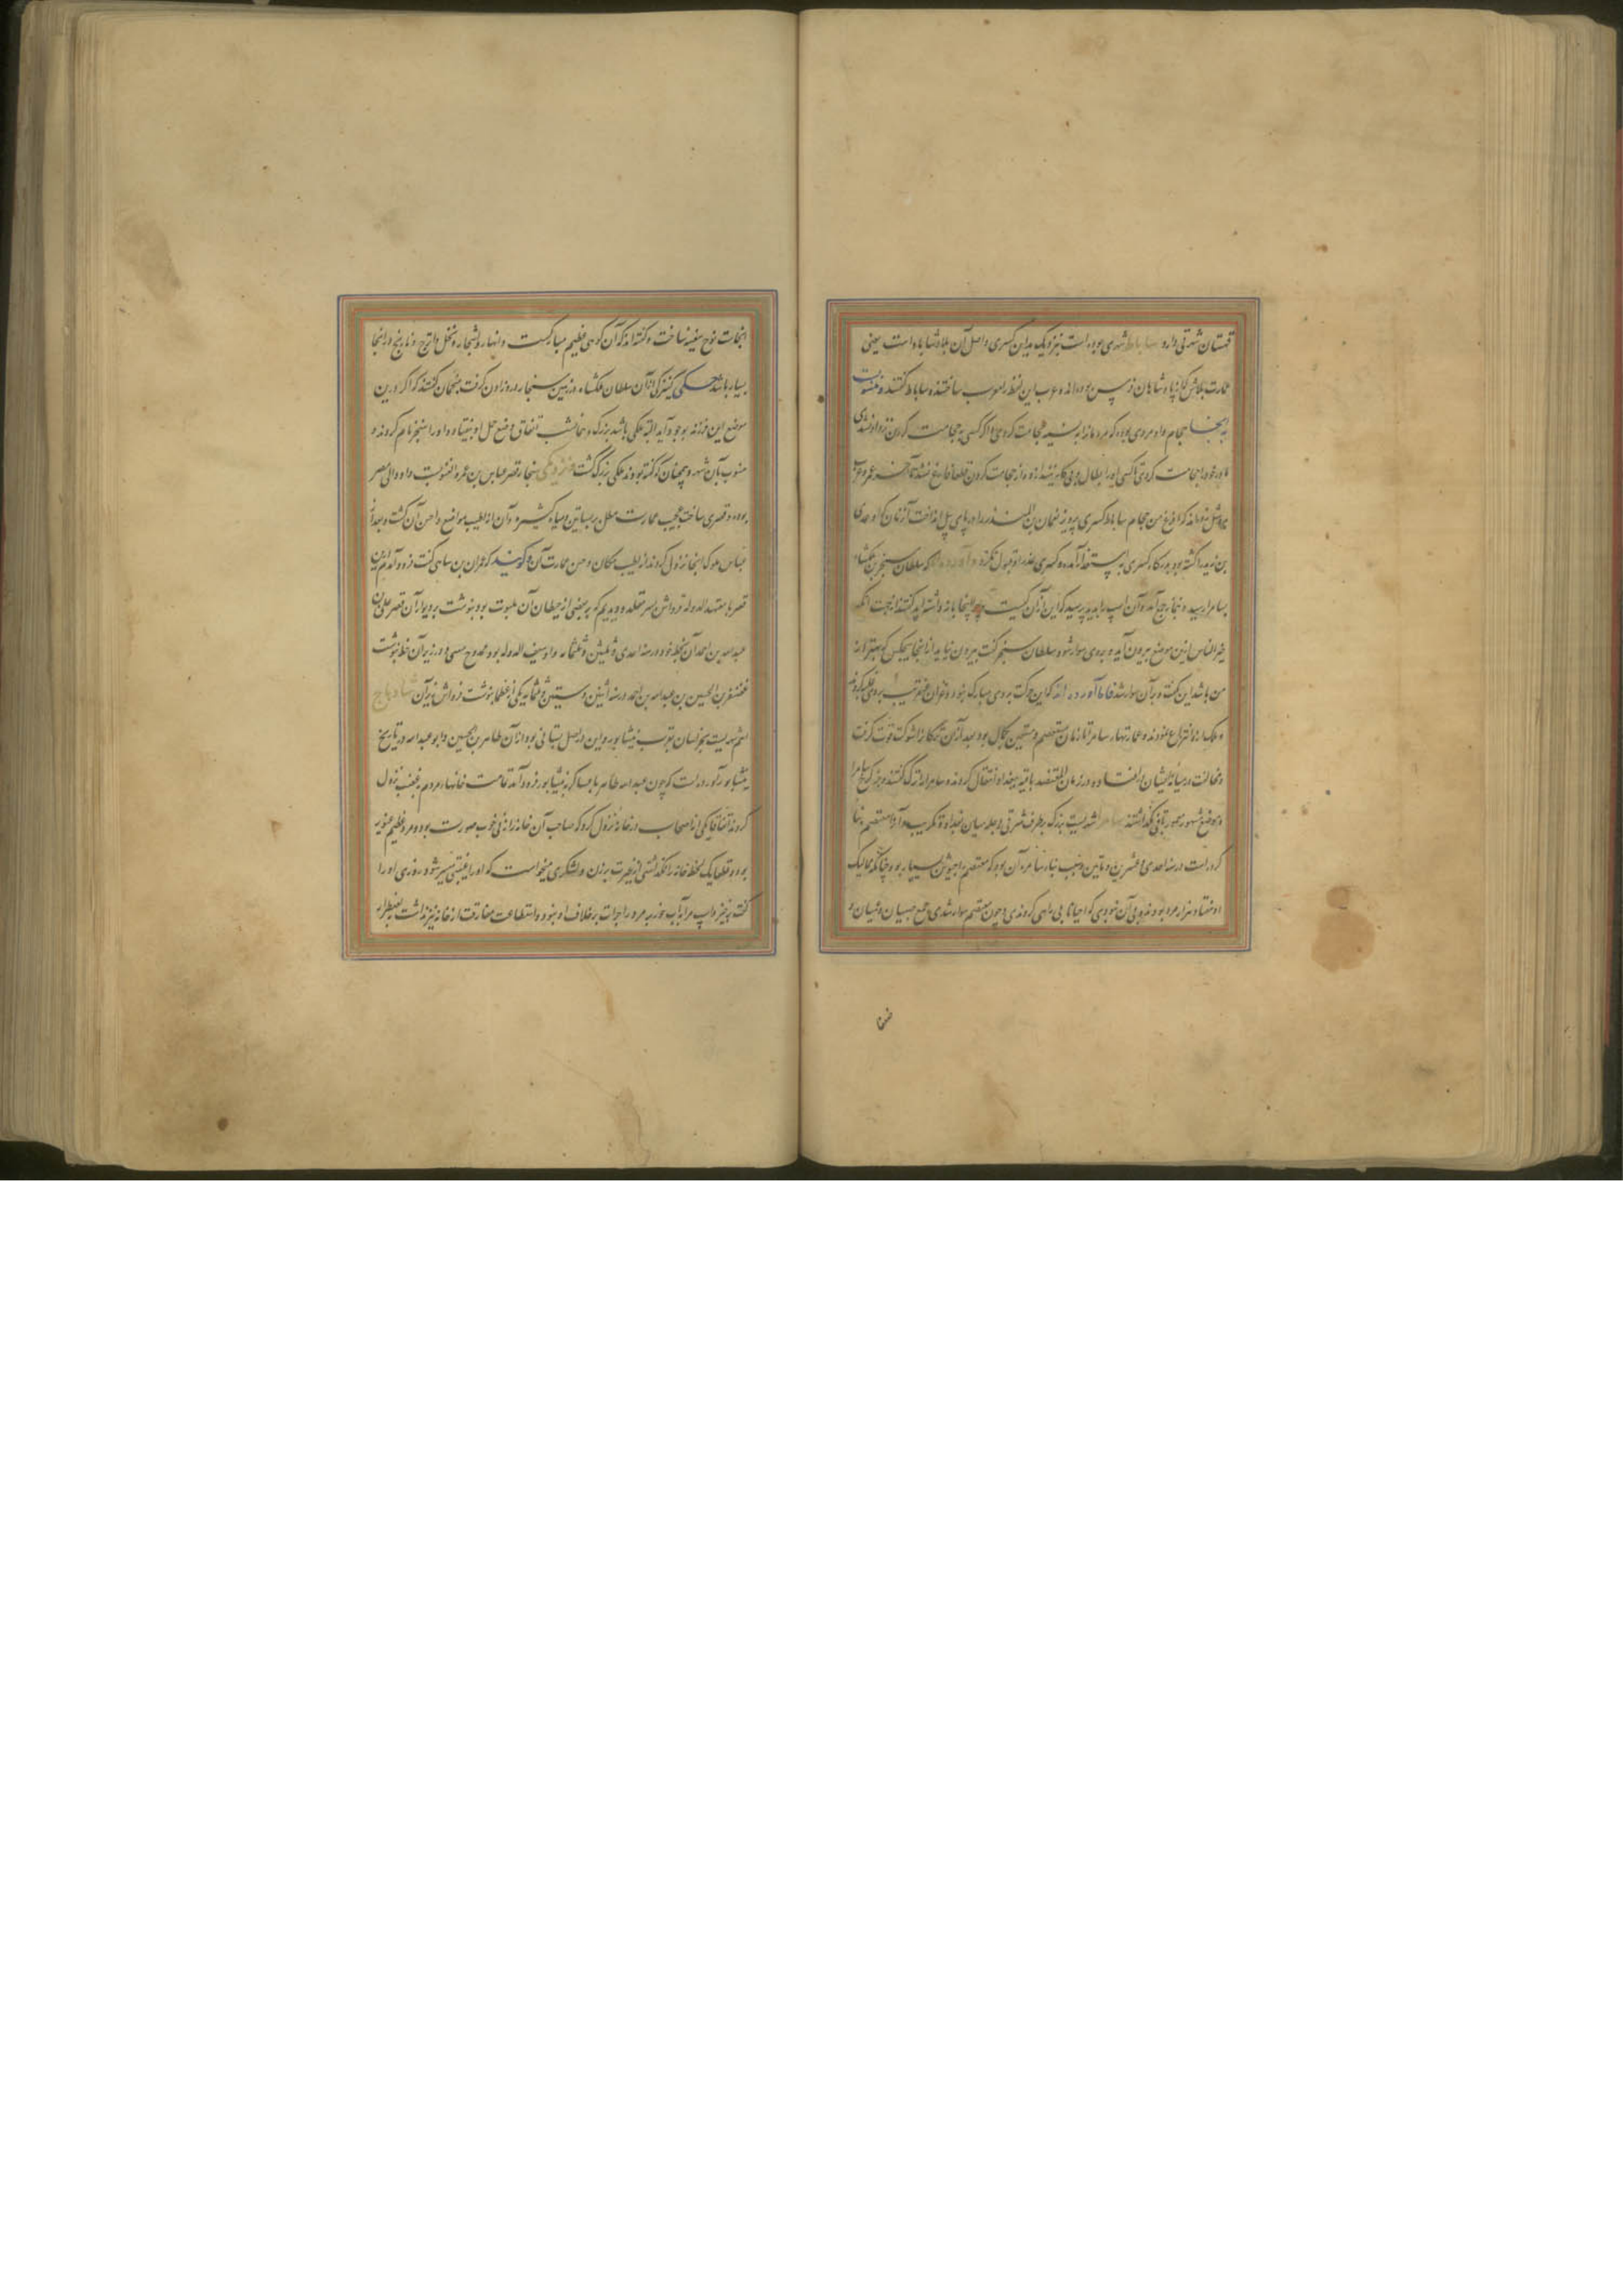 قهستان شهرتی دارد ساباط شهری بوده است بنزدیک مداین کسری و اصل آن بلاد شاباد است یعنی
عمارت بلاش که از پادشاهان فرس بوده اند و عرب این لفظ را معرب ساختند و ساباط گفتند و منسوبست
به اینجا حجام و او مردی بوده که مردمانرا به نسیه حجامت کردی و اگر کسی به حجامت کردن نزد او نیامدی
مادر خود را حجامت کردی تا کسی او را بطال و بی کار نبیند و از حجامت کردن قطعا فارغ نشد تا آخر عمر و عرب
مثل زده اند که افرغ من حجام ساباط کسری پرویز نعمان بن المنذر را در پای پیل انداخت آن زمان که او عدی
بن زید را کشته بود و بدرگاه کسری به استغفار آمده و کسری عذر او قبول نکرد و آورده اند که سلطان سنجر بن ملکشاه
بسامرا رسید و بنماز جمعه آمد و آن اسپ را بدید پرسید که این از آن کیست و چرا اینجا باز داشته اید گفتند از جهت آنکه
خیر الناس ازین موضع بیرون آید و بر وی سوار شود سلطان سنجر گفت بیرون نیاید از اینجا هیچکس که بهتر از
من باشد این گفت و بر آن سوار شد فاما آورده اند که این حرکت بر وی مبارک نبود و غزان عنقریب بر وی غلبه کردند
و ملک از او انتزاع نمودند و عمارتهای سامرا تا زمان معتصم و مستعین بحال بود بعد از آن ترکانرا شوکت قوت گرفت
و مخالفت در میانه ایشان افتاده و در زمان المعتضد بالله ببغداد انتقال کردند و سامرا را ترک گفتند و بجز کرخ سامرا
و موضع مشهور معمور باقی نگذاشتند سامرا شهریست بزرگ بطرف شرقی دجله میان بغداد و تکریت و آنرا معتصم بنا
کرده است در سنه احدی و عشرین و مایتین و سبب بناء سامره آن بود که معتصم را جیوش بسیار بود چنانکه ممالیک
او هفتاد هزار مرد بودند و بی آن نبودی که احیانا بی راهی کردندی و چون معتصم سوار شدی جمع صبیان و نسیان و
ضعفا
اینجاست نوح سفینه ساخت و گفته اند که آن کوهی عظیم مبارکست و انهار و اشجار و نخل و اترج و نارنج در اینجا
بسیار باشد حکی کنیزکی از آن سلطان ملکشاه در زمین سنجار درد زادن گرفت منجمان گفتند که اگر درین
موضع این فرزند بوجود آید البته ملکی باشد بزرگ و همانشب اتفاق وضع حمل او بیفتاد و او را سنجر نام کردند و
منسوب بآن شهر و همچنان که گفته بودند ملکی بزرگ گشت و نزدیکی سنجار قصر عباس بن عمرو الغنویست و او والی مصر
بوده و قصری ساخته عجیب عمارت مطل بر بساتین و میاه کثیره و آن از اطیب مواضع و احسن آن گشت و بعد از
عباس ملوک اینجا نزول کردند از طیب مکان و حسن عمارت آن و گویند که عمران بن ساهی گفت فرود آمدیم باین
قصر با معتمد الدوله قرواش بن مقلد و دیدیم که بر بعضی از حیطان آن مکتوب بود و نبشت بر دیوار آن قصر علی بن
عبدالله بن احمد آن بخطه خود در سنه احدی و ثلثین و ثلثمائه و او سیف الدوله بود ممدوح متنبی و در زیر آن خط نبشت
غضنفر بن الحسین بن عبدالله بن احمد در سنه اثنین و ستین و ثلثمائه یکی از عظما نبشت قرواش بزیر آن شادیاخ
اسم شهریست بخراسان بقرب نیشابور و این در اصل بستانی بود از آن طاهر بن الحسین و ابو عبدالله در تاریخ
نیشابور آورده است که چون عبدالله طاهر با عساکر به نیشابور فرود آمد قامت خانهاء مردم بغصب نزول
کردند اتفاقا یکی از اصحاب در خانه نزول کرد که صاحب آن خانه را زنی خوب صورت بود و مرد عظیم غیور
بود و قطعا یک لحظه خانه را نگذاشتی از غیرت بر زن و لشکری میخواست که او را غیبتی میسر شود روزی او را
گفت برخیز و اسپ مرا آب خور به مرد را جرات بر خلاف او نبود و استطاعت مفارقت از خانه نیز نداشت بضطرار